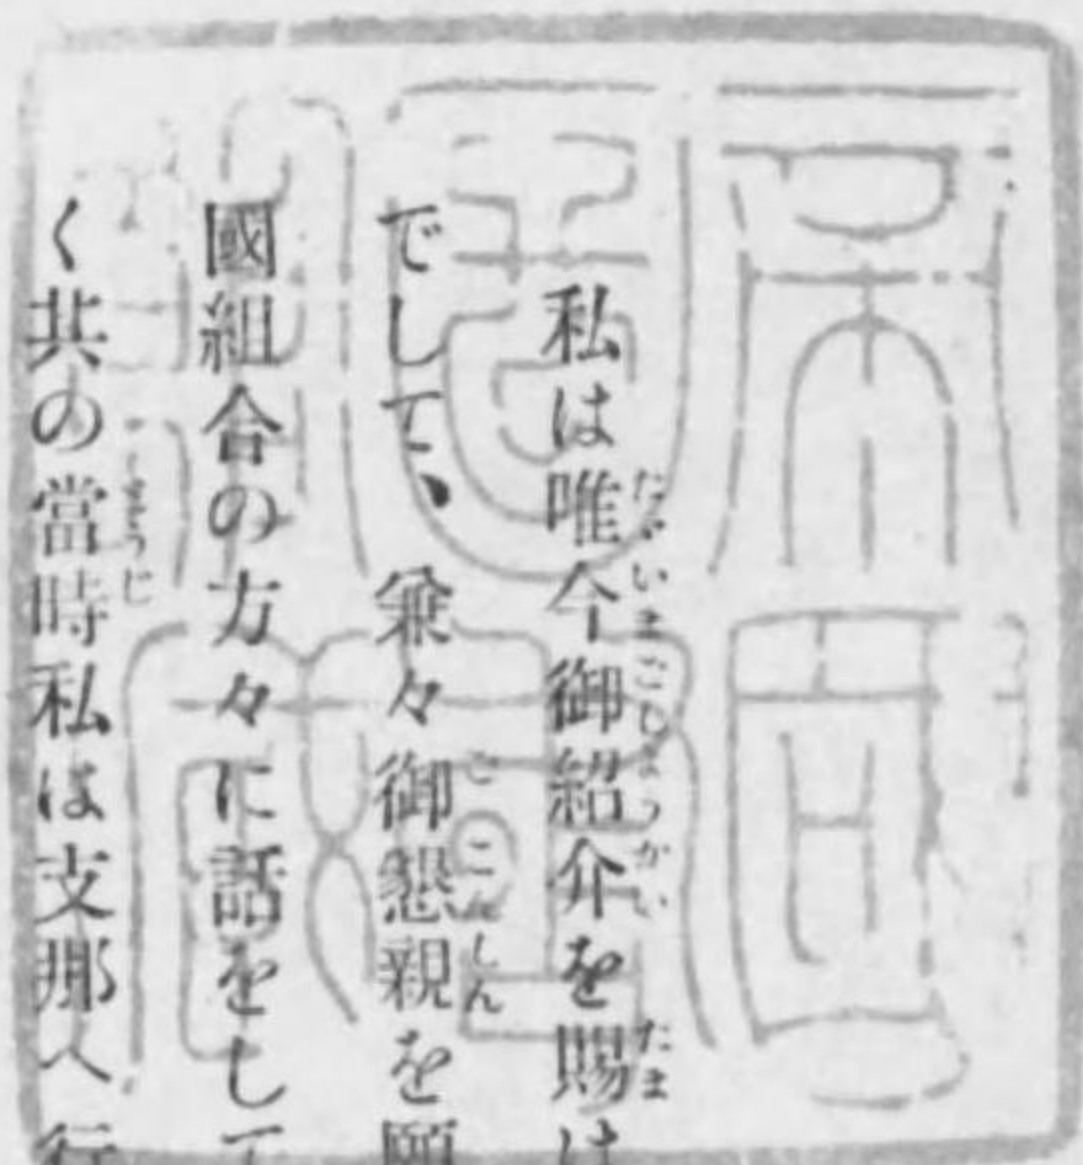 私は唯今御紹介を賜は
でして、兼々御懇親を願
國組合の方々に話をして
く共の當時私は支那へ行